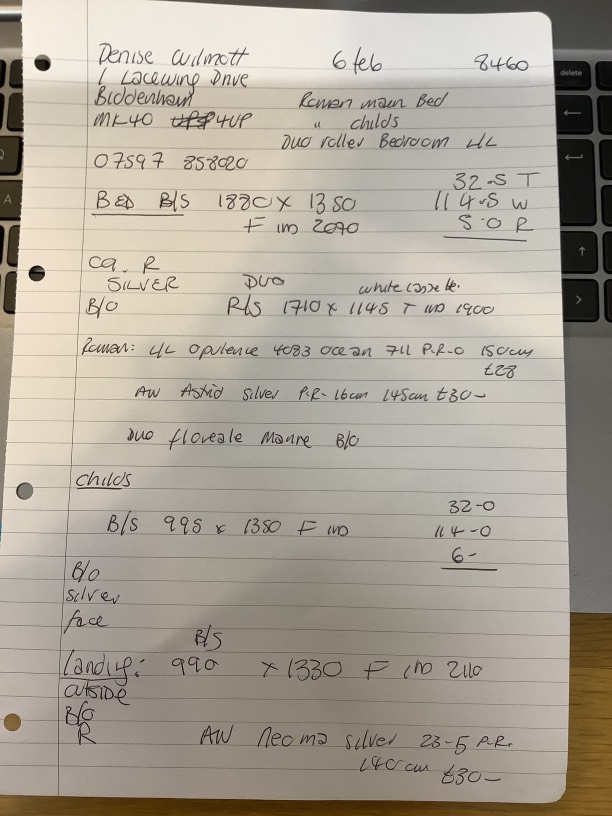 Denise Wilmott 6 feb 8460
1 Lacewing Drive
Biddenham Roman main Bed
MK40 4UP " childs
Duo roller Bedroom L/L
07597 858020
32.5 T
BED B/S 1880 x 1350 114.5 W
F IND 2070 5.0 R
R
SILVER DUO white cassette.
B/O R/S 1710 x 1145 T IND 1900
Roman: L/L Opulence 4083 Ocean 711 P.R-0 150cm
£28
AW Astrid Silver P.R- 16cm 145cm £30-
Duo floreale Marine B/O
childs
32-0
B/S 995 x 1350 F IND 114-0
6-
B/O
silver
face
B/S
Landing: 990 x 1330 F IND 2110
outside
B/O
R AW Neoma silver 23-5 P.R.
140cm £30-